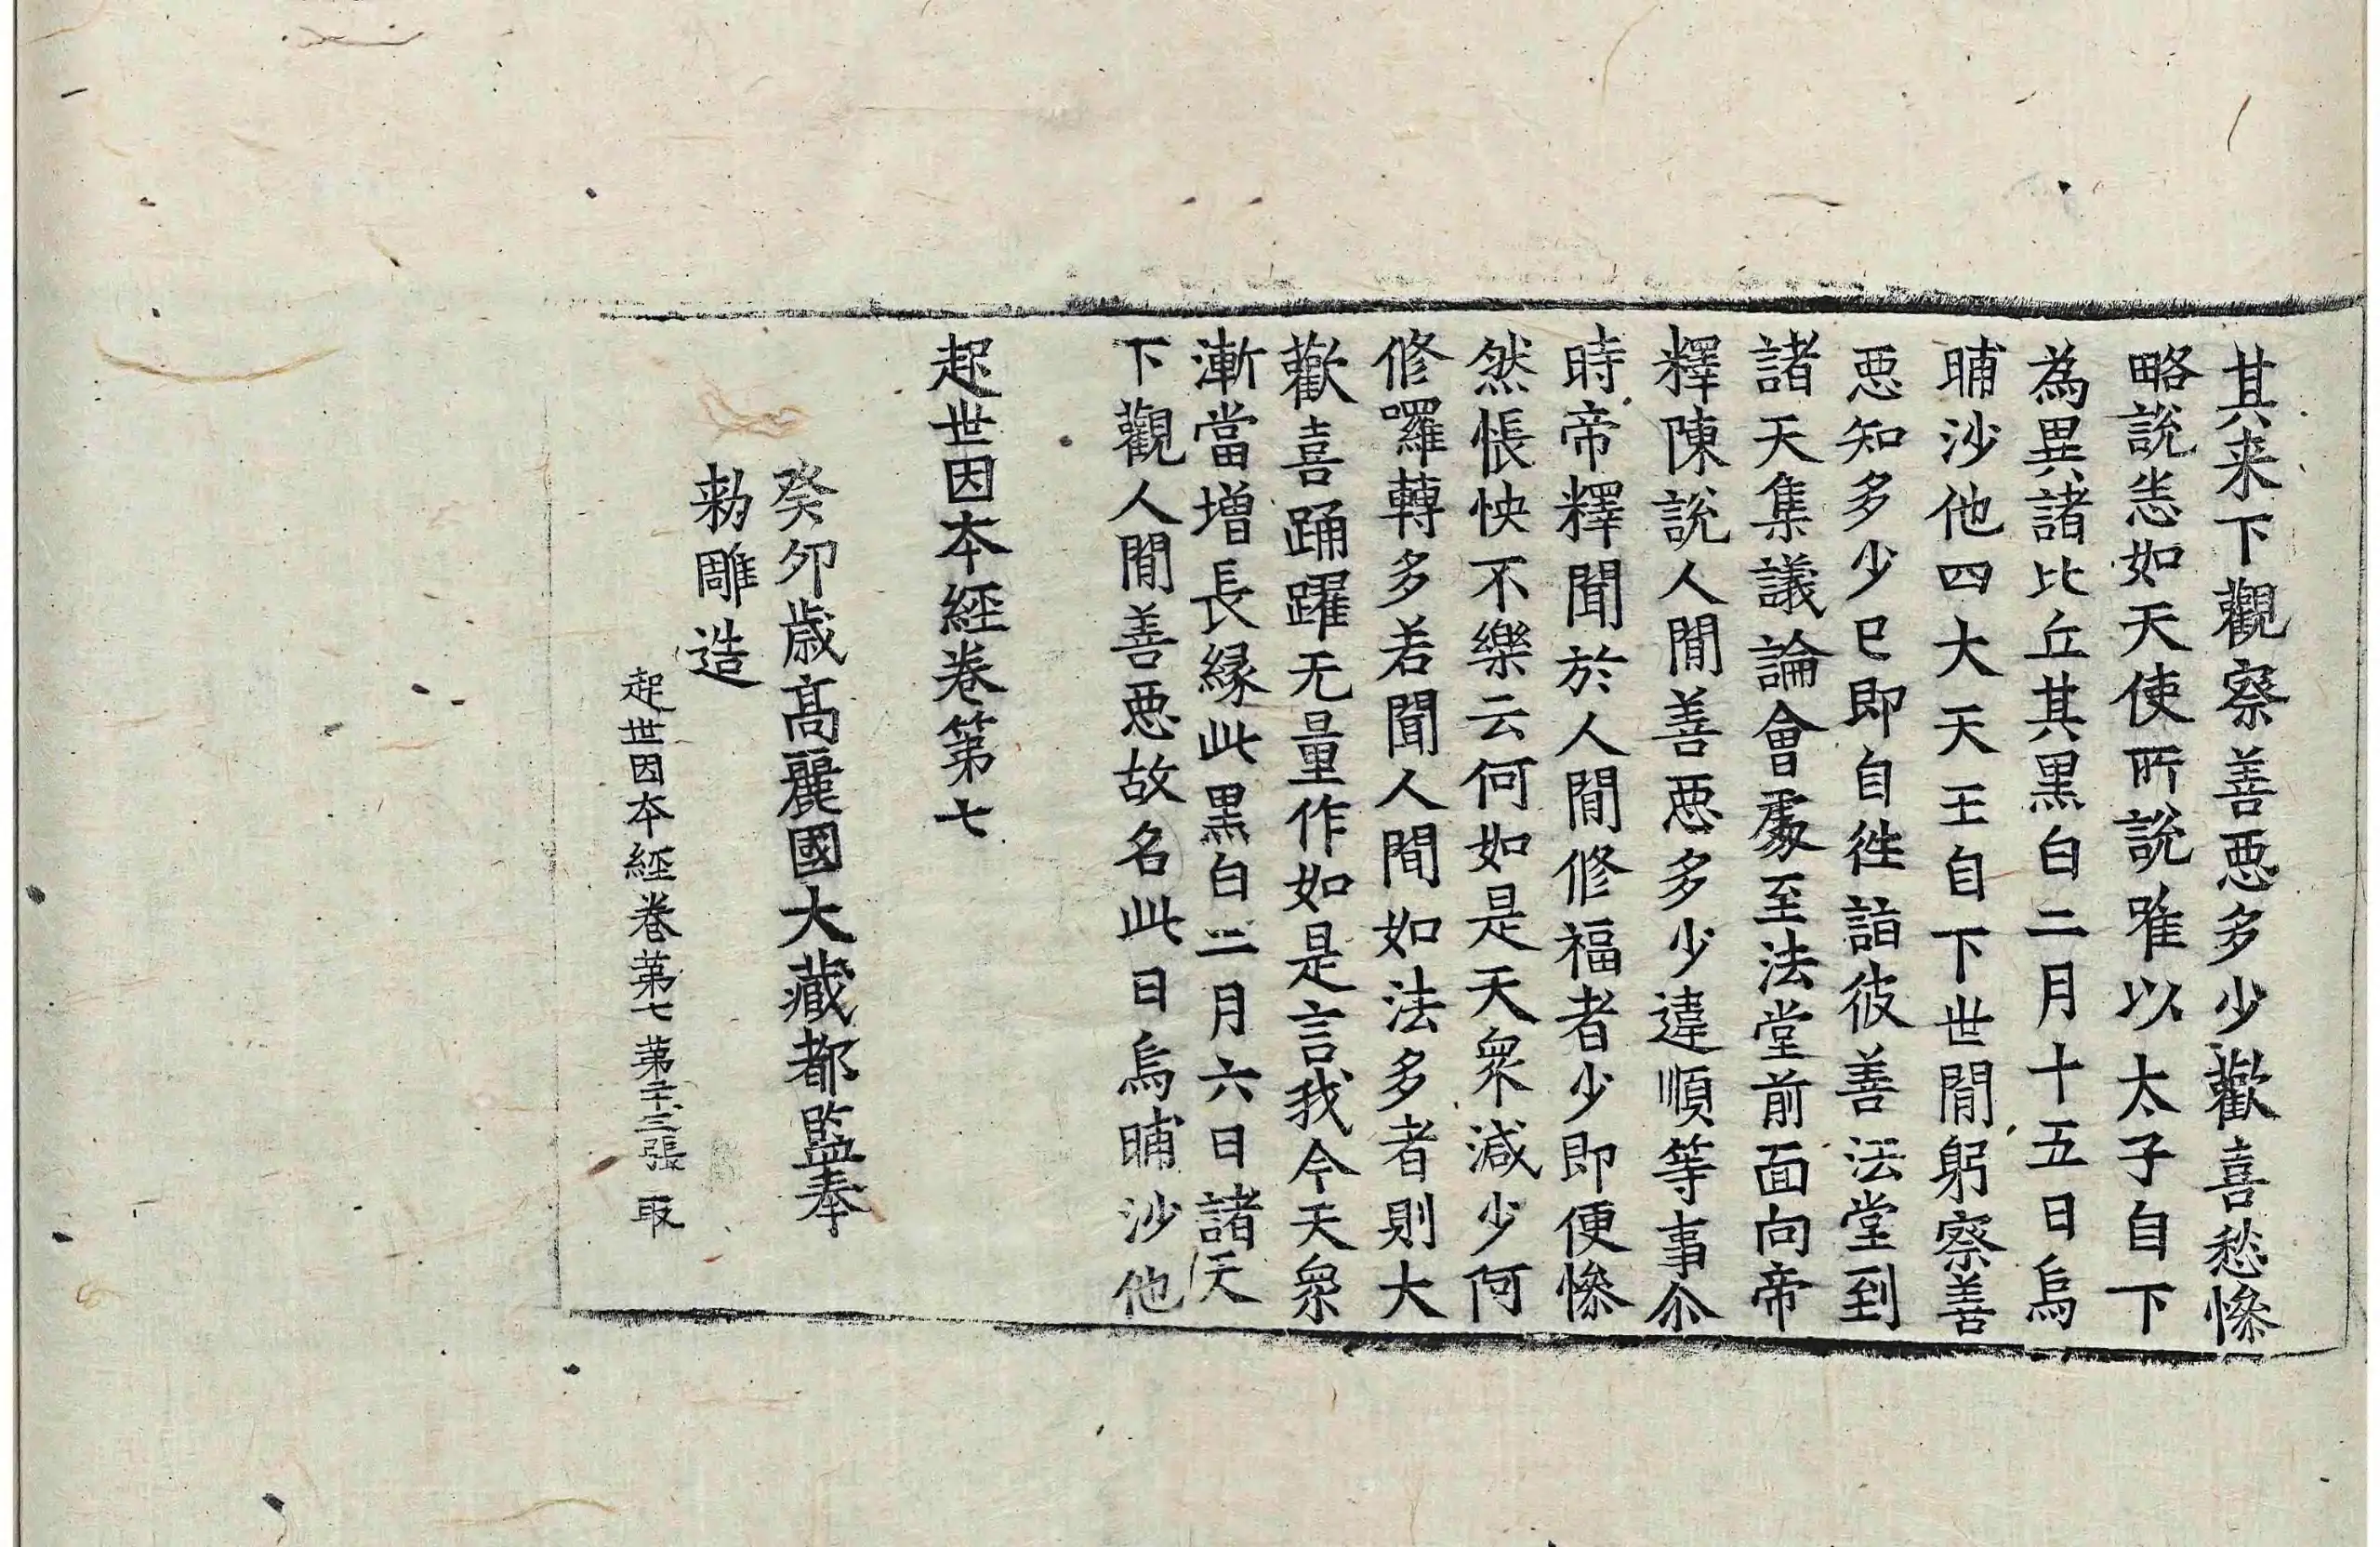 其来下觀察善惡多少歡喜愁慘
略說恙如天使所說唯以太子自下
為異諸比丘其黑白二月十五日烏
晡沙他四大天王自下世閒躬察善
惡知多少已即自往詣彼善法堂到
諸天集議論會處至法堂前面向帝
釋陳說人閒善惡多少違順等事尒
時帝釋聞於人閒修福者少即便慘
然悵怏不樂云何如是天衆減少阿
修囉轉多若聞人閒如法多者則大
歡喜踊躍无量作如是言我今天衆
漸當增長緣此黑白二月六日諸天
下觀人閒善惡故名此日烏晡沙他
起世因本經卷第七
癸卯歲高麗國大藏都監奉
勑雕造
起世因本經卷第七 第二十三張 取